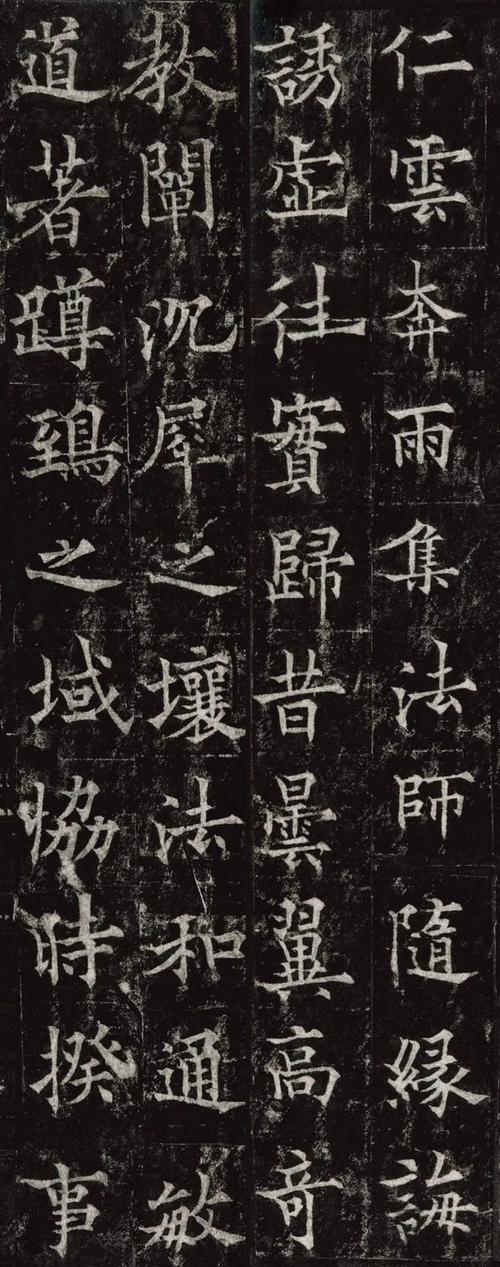 仁雲奔雨集法師隨緣誨
誘虛往實歸昔曇翼高奇
教闡沉犀之壤法和通敏
道著蹲鵄之域協時揆事